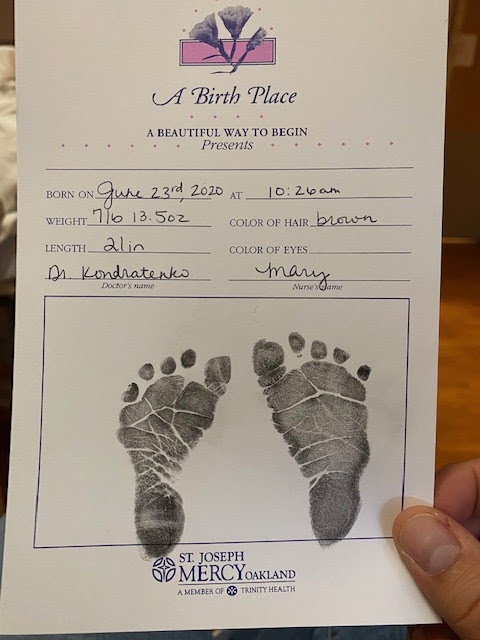 A Birth Place
A BEAUTIFUL WAY TO BEGIN
Presents
BORN ON June 23rd, 2020 AT 10:26am
WEIGHT 7lb 13.5oz COLOR OF HAIR brown
LENGTH 21in COLOR OF EYES
Dr. Kondratenko Mary
Doctor's name Nurse's name
ST. JOSEPH
MERCY OAKLAND
A MEMBER OF TRINITY HEALTH